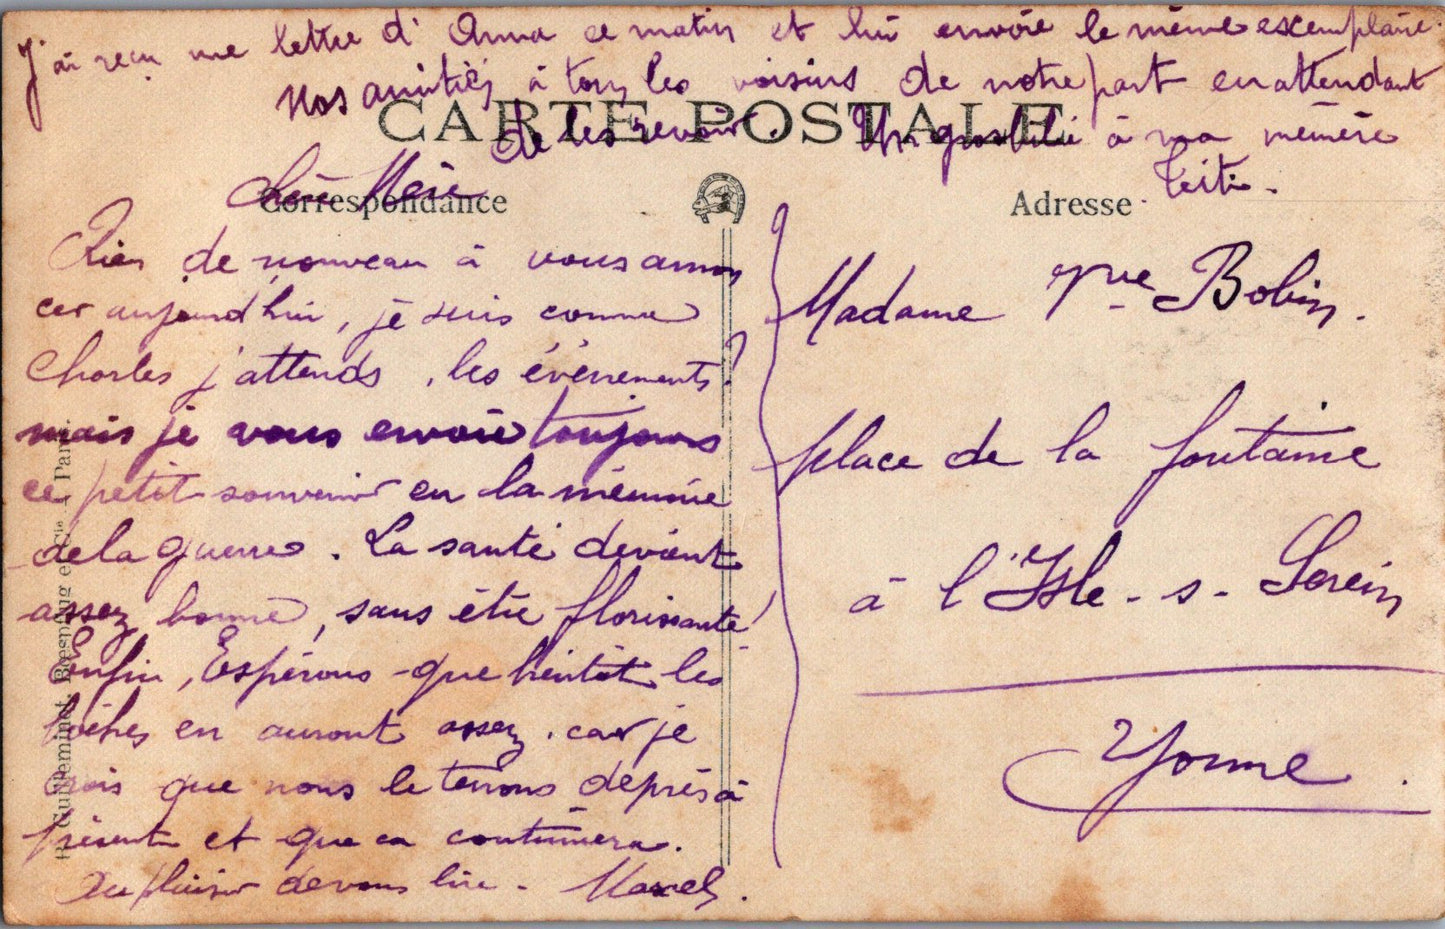 J'ai reçu une lettre d'Anna ce matin et lui envoie le même excemplaire.
Nos amitiés à tous les voisins de notre part en attendant
de les revoir. Un à ma mémère
Titi.
CARTE POSTALE
Correspondance
Adresse
Chère Mère
Rien de nouveau à vous annon
cer aujourd'hui, je suis comme
Charles j'attends, les événements!
mais je vous envoie toujours
ce petit souvenir en la mémoire
de la guerre. La santé devient
assez bonne, sans être florissante!
Enfin, Espérons que bientôt les
boches en auront assez. car je
crois que nous les tenons de près à
présent et que ça continuera.
Au plaisir de vous lire. Marcel.
Madame Vve Bobin.
place de la fontaine
à l'Isle-s-Serein
Yonne.
Guilleminot, Boespflug et Cie. Paris